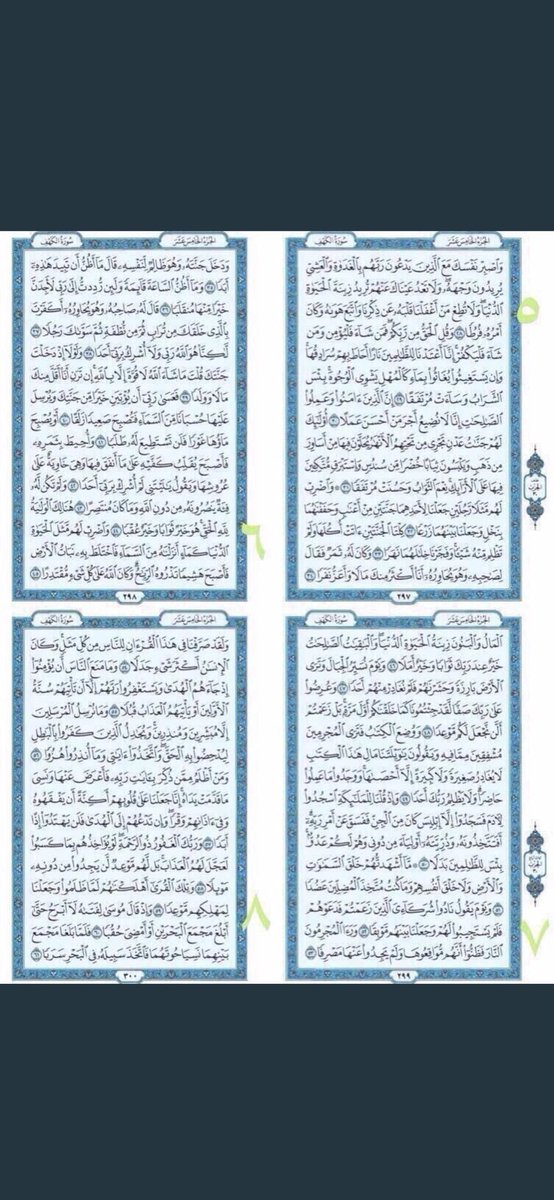 سُورَةُ الكَهْفِ
الجُزْءُ الخَامِسَ عَشَرَ
وَٱصْبِرْ نَفْسَكَ مَعَ ٱلَّذِينَ يَدْعُونَ رَبَّهُم بِٱلْغَدَوٰةِ وَٱلْعَشِيِّ
يُرِيدُونَ وَجْهَهُۥ وَلَا تَعْدُ عَيْنَاكَ عَنْهُمْ تُرِيدُ زِينَةَ ٱلْحَيَوٰةِ
ٱلدُّنْيَا وَلَا تُطِعْ مَنْ أَغْفَلْنَا قَلْبَهُۥ عَن ذِكْرِنَا وَٱتَّبَعَ هَوَىٰهُ وَكَانَ
أَمْرُهُۥ فُرُطًا ٢٨ وَقُلِ ٱلْحَقُّ مِن رَّبِّكُمْ فَمَن شَآءَ فَلْيُؤْمِن وَمَن
شَآءَ فَلْيَكْفُرْ إِنَّآ أَعْتَدْنَا لِلظَّٰلِمِينَ نَارًا أَحَاطَ بِهِمْ سُرَادِقُهَا
وَإِن يَسْتَغِيثُوا۟ يُغَاثُوا۟ بِمَآءٍ كَٱلْمُهْلِ يَشْوِى ٱلْوُجُوهَ بِئْسَ
ٱلشَّرَابُ وَسَآءَتْ مُرْتَفَقًا ٢٩ إِنَّ ٱلَّذِينَ ءَامَنُوا۟ وَعَمِلُوا۟
ٱلصَّٰلِحَٰتِ إِنَّا لَا نُضِيعُ أَجْرَ مَنْ أَحْسَنَ عَمَلًا ٣٠ أُو۟لَٰٓئِكَ
لَهُمْ جَنَّٰتُ عَدْنٍ تَجْرِى مِن تَحْتِهِمُ ٱلْأَنْهَٰرُ يُحَلَّوْنَ فِيهَا مِنْ أَسَاوِرَ
مِن ذَهَبٍ وَيَلْبَسُونَ ثِيَابًا خُضْرًا مِّن سُندُسٍ وَإِسْتَبْرَقٍ مُّتَّكِـِٔينَ
فِيهَا عَلَى ٱلْأَرَآئِكِ نِعْمَ ٱلثَّوَابُ وَحَسُنَتْ مُرْتَفَقًا ٣١ وَٱضْرِبْ
لَهُم مَّثَلًا رَّجُلَيْنِ جَعَلْنَا لِأَحَدِهِمَا جَنَّتَيْنِ مِنْ أَعْنَٰبٍ وَحَفَفْنَٰهُمَا
بِنَخْلٍ وَجَعَلْنَا بَيْنَهُمَا زَرْعًا ٣٢ كِلْتَا ٱلْجَنَّتَيْنِ ءَاتَتْ أُكُلَهَا وَلَمْ
تَظْلِم مِّنْهُ شَيْـًٔا وَفَجَّرْنَا خِلَٰلَهُمَا نَهَرًا ٣٣ وَكَانَ لَهُۥ ثَمَرٌ فَقَالَ
لِصَٰحِبِهِۦ وَهُوَ يُحَاوِرُهُۥٓ أَنَا۠ أَكْثَرُ مِنكَ مَالًا وَأَعَزُّ نَفَرًا ٣٤
٢٩٧
٥
سُورَةُ الكَهْفِ
الجُزْءُ الخَامِسَ عَشَرَ
وَدَخَلَ جَنَّتَهُۥ وَهُوَ ظَالِمٌ لِّنَفْسِهِۦ قَالَ مَآ أَظُنُّ أَن تَبِيدَ هَٰذِهِۦٓ
أَبَدًا ٣٥ وَمَآ أَظُنُّ ٱلسَّاعَةَ قَآئِمَةً وَلَئِن رُّدِدتُّ إِلَىٰ رَبِّى لَأَجِدَنَّ
خَيْرًا مِّنْهَا مُنقَلَبًا ٣٦ قَالَ لَهُۥ صَاحِبُهُۥ وَهُوَ يُحَاوِرُهُۥٓ أَكَفَرْتَ
بِٱلَّذِى خَلَقَكَ مِن تُرَابٍ ثُمَّ مِن نُّطْفَةٍ ثُمَّ سَوَّىٰكَ رَجُلًا ٣٧
لَّٰكِنَّا۠ هُوَ ٱللَّهُ رَبِّى وَلَآ أُشْرِكُ بِرَبِّىٓ أَحَدًا ٣٨ وَلَوْلَآ إِذْ دَخَلْتَ
جَنَّتَكَ قُلْتَ مَا شَآءَ ٱللَّهُ لَا قُوَّةَ إِلَّا بِٱللَّهِ إِن تَرَنِ أَنَا۠ أَقَلَّ مِنكَ
مَالًا وَوَلَدًا ٣٩ فَعَسَىٰ رَبِّىٓ أَن يُؤْتِيَنِ خَيْرًا مِّن جَنَّتِكَ وَيُرْسِلَ
عَلَيْهَا حُسْبَانًا مِّنَ ٱلسَّمَآءِ فَتُصْبِحَ صَعِيدًا زَلَقًا ٤٠ أَوْ يُصْبِحَ
مَآؤُهَا غَوْرًا فَلَن تَسْتَطِيعَ لَهُۥ طَلَبًا ٤١ وَأُحِيطَ بِثَمَرِهِۦ
فَأَصْبَحَ يُقَلِّبُ كَفَّيْهِ عَلَىٰ مَآ أَنفَقَ فِيهَا وَهِىَ خَاوِيَةٌ عَلَىٰ
عُرُوشِهَا وَيَقُولُ يَٰلَيْتَنِى لَمْ أُشْرِكْ بِرَبِّىٓ أَحَدًا ٤٢ وَلَمْ تَكُن لَّهُۥ
فِئَةٌ يَنصُرُونَهُۥ مِن دُونِ ٱللَّهِ وَمَا كَانَ مُنتَصِرًا ٤٣ هُنَالِكَ ٱلْوَلَٰيَةُ
لِلَّهِ ٱلْحَقِّ هُوَ خَيْرٌ ثَوَابًا وَخَيْرٌ عُقْبًا ٤٤ وَٱضْرِبْ لَهُم مَّثَلَ ٱلْحَيَوٰةِ
ٱلدُّنْيَا كَمَآءٍ أَنزَلْنَٰهُ مِنَ ٱلسَّمَآءِ فَٱخْتَلَطَ بِهِۦ نَبَاتُ ٱلْأَرْضِ
فَأَصْبَحَ هَشِيمًا تَذْرُوهُ ٱلرِّيَٰحُ وَكَانَ ٱللَّهُ عَلَىٰ كُلِّ شَىْءٍ مُّقْتَدِرًا ٤٥
٢٩٨
٦
سُورَةُ الكَهْفِ
الجُزْءُ الخَامِسَ عَشَرَ
ٱلْمَالُ وَٱلْبَنُونَ زِينَةُ ٱلْحَيَوٰةِ ٱلدُّنْيَا وَٱلْبَٰقِيَٰتُ ٱلصَّٰلِحَٰتُ
خَيْرٌ عِندَ رَبِّكَ ثَوَابًا وَخَيْرٌ أَمَلًا ٤٦ وَيَوْمَ نُسَيِّرُ ٱلْجِبَالَ وَتَرَى
ٱلْأَرْضَ بَارِزَةً وَحَشَرْنَٰهُمْ فَلَمْ نُغَادِرْ مِنْهُمْ أَحَدًا ٤٧ وَعُرِضُوا۟
عَلَىٰ رَبِّكَ صَفًّا لَّقَدْ جِئْتُمُونَا كَمَا خَلَقْنَٰكُمْ أَوَّلَ مَرَّةٍ بَلْ زَعَمْتُمْ
أَلَّن نَّجْعَلَ لَكُم مَّوْعِدًا ٤٨ وَوُضِعَ ٱلْكِتَٰبُ فَتَرَى ٱلْمُجْرِمِينَ
مُشْفِقِينَ مِمَّا فِيهِ وَيَقُولُونَ يَٰوَيْلَتَنَا مَالِ هَٰذَا ٱلْكِتَٰبِ
لَا يُغَادِرُ صَغِيرَةً وَلَا كَبِيرَةً إِلَّآ أَحْصَىٰهَا وَوَجَدُوا۟ مَا عَمِلُوا۟
حَاضِرًا وَلَا يَظْلِمُ رَبُّكَ أَحَدًا ٤٩ وَإِذْ قُلْنَا لِلْمَلَٰٓئِكَةِ ٱسْجُدُوا۟
لِـَٔادَمَ فَسَجَدُوٓا۟ إِلَّآ إِبْلِيسَ كَانَ مِنَ ٱلْجِنِّ فَفَسَقَ عَنْ أَمْرِ رَبِّهِۦٓ
أَفَتَتَّخِذُونَهُۥ وَذُرِّيَّتَهُۥٓ أَوْلِيَآءَ مِن دُونِى وَهُمْ لَكُمْ عَدُوٌّۢ
بِئْسَ لِلظَّٰلِمِينَ بَدَلًا ٥٠ مَّآ أَشْهَدتُّهُمْ خَلْقَ ٱلسَّمَٰوَٰتِ
وَٱلْأَرْضِ وَلَا خَلْقَ أَنفُسِهِمْ وَمَا كُنتُ مُتَّخِذَ ٱلْمُضِلِّينَ عَضُدًا
٥١ وَيَوْمَ يَقُولُ نَادُوا۟ شُرَكَآءِىَ ٱلَّذِينَ زَعَمْتُمْ فَدَعَوْهُمْ
فَلَمْ يَسْتَجِيبُوا۟ لَهُمْ وَجَعَلْنَا بَيْنَهُم مَّوْبِقًا ٥٢ وَرَءَا ٱلْمُجْرِمُونَ
ٱلنَّارَ فَظَنُّوٓا۟ أَنَّهُم مُّوَاقِعُوهَا وَلَمْ يَجِدُوا۟ عَنْهَا مَصْرِفًا ٥٣
٢٩٩
٧
سُورَةُ الكَهْفِ
الجُزْءُ الخَامِسَ عَشَرَ
وَلَقَدْ صَرَّفْنَا فِى هَٰذَا ٱلْقُرْءَانِ لِلنَّاسِ مِن كُلِّ مَثَلٍ وَكَانَ
ٱلْإِنسَٰنُ أَكْثَرَ شَىْءٍ جَدَلًا ٥٤ وَمَا مَنَعَ ٱلنَّاسَ أَن يُؤْمِنُوٓا۟
إِذْ جَآءَهُمُ ٱلْهُدَىٰ وَيَسْتَغْفِرُوا۟ رَبَّهُمْ إِلَّآ أَن تَأْتِيَهُمْ سُنَّةُ
ٱلْأَوَّلِينَ أَوْ يَأْتِيَهُمُ ٱلْعَذَابُ قُبُلًا ٥٥ وَمَا نُرْسِلُ ٱلْمُرْسَلِينَ
إِلَّا مُبَشِّرِينَ وَمُنذِرِينَ وَيُجَٰدِلُ ٱلَّذِينَ كَفَرُوا۟ بِٱلْبَٰطِلِ
لِيُدْحِضُوا۟ بِهِ ٱلْحَقَّ وَٱتَّخَذُوٓا۟ ءَايَٰتِى وَمَآ أُنذِرُوا۟ هُزُوًا ٥٦
وَمَنْ أَظْلَمُ مِمَّن ذُكِّرَ بِـَٔايَٰتِ رَبِّهِۦ فَأَعْرَضَ عَنْهَا وَنَسِىَ
مَا قَدَّمَتْ يَدَاهُ إِنَّا جَعَلْنَا عَلَىٰ قُلُوبِهِمْ أَكِنَّةً أَن يَفْقَهُوهُ
وَفِىٓ ءَاذَانِهِمْ وَقْرًا وَإِن تَدْعُهُمْ إِلَى ٱلْهُدَىٰ فَلَن يَهْتَدُوٓا۟ إِذًا
أَبَدًا ٥٧ وَرَبُّكَ ٱلْغَفُورُ ذُو ٱلرَّحْمَةِ لَوْ يُؤَاخِذُهُم بِمَا كَسَبُوا۟
لَعَجَّلَ لَهُمُ ٱلْعَذَابَ بَل لَّهُم مَّوْعِدٌ لَّن يَجِدُوا۟ مِن دُونِهِۦ
مَوْئِلًا ٥٨ وَتِلْكَ ٱلْقُرَىٰٓ أَهْلَكْنَٰهُمْ لَمَّا ظَلَمُوا۟ وَجَعَلْنَا
لِمَهْلِكِهِم مَّوْعِدًا ٥٩ وَإِذْ قَالَ مُوسَىٰ لِفَتَىٰهُ لَآ أَبْرَحُ حَتَّىٰٓ
أَبْلُغَ مَجْمَعَ ٱلْبَحْرَيْنِ أَوْ أَمْضِىَ حُقُبًا ٦٠ فَلَمَّا بَلَغَا مَجْمَعَ
بَيْنِهِمَا نَسِيَا حُوتَهُمَا فَٱتَّخَذَ سَبِيلَهُۥ فِى ٱلْبَحْرِ سَرَبًا ٦١
٣٠٠
٨